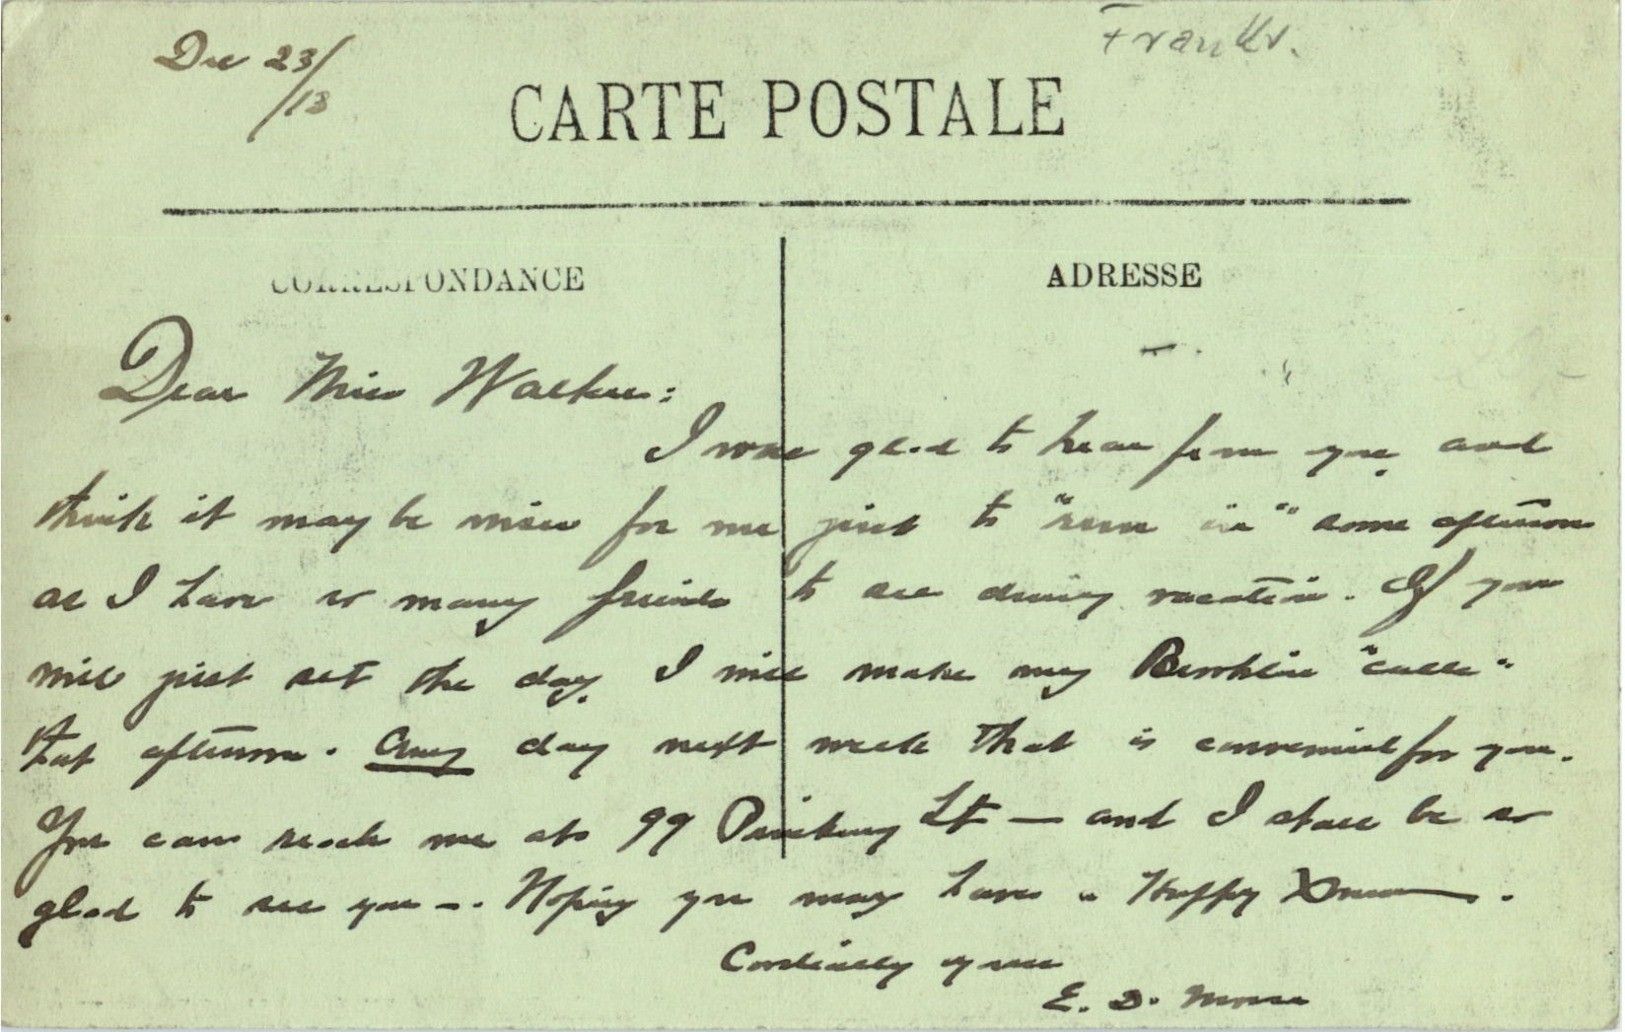 Dec 23/13
CARTE POSTALE
CORRESPONDANCE
ADRESSE
Dear Miss Walker:
I was glad to hear from you and
think it may be nice for me just to "run in" some afternoon
as I have so many friends to see during vacation. If you
will just set the day, I will make my Brookline "calls"
that afternoon. Any day next week that is convenient for you.
You can reach me at 99 Pinckney St — and I shall be so
glad to see you —. Hoping you may have a Happy Xmas.
Cordially yours
E. D. Morse